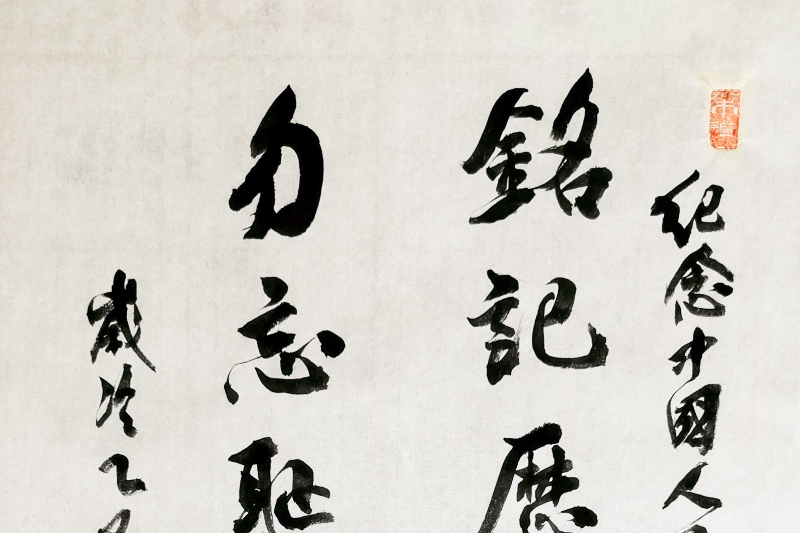 紀念中國人
銘記歷
勿忘恥
歲冷乙